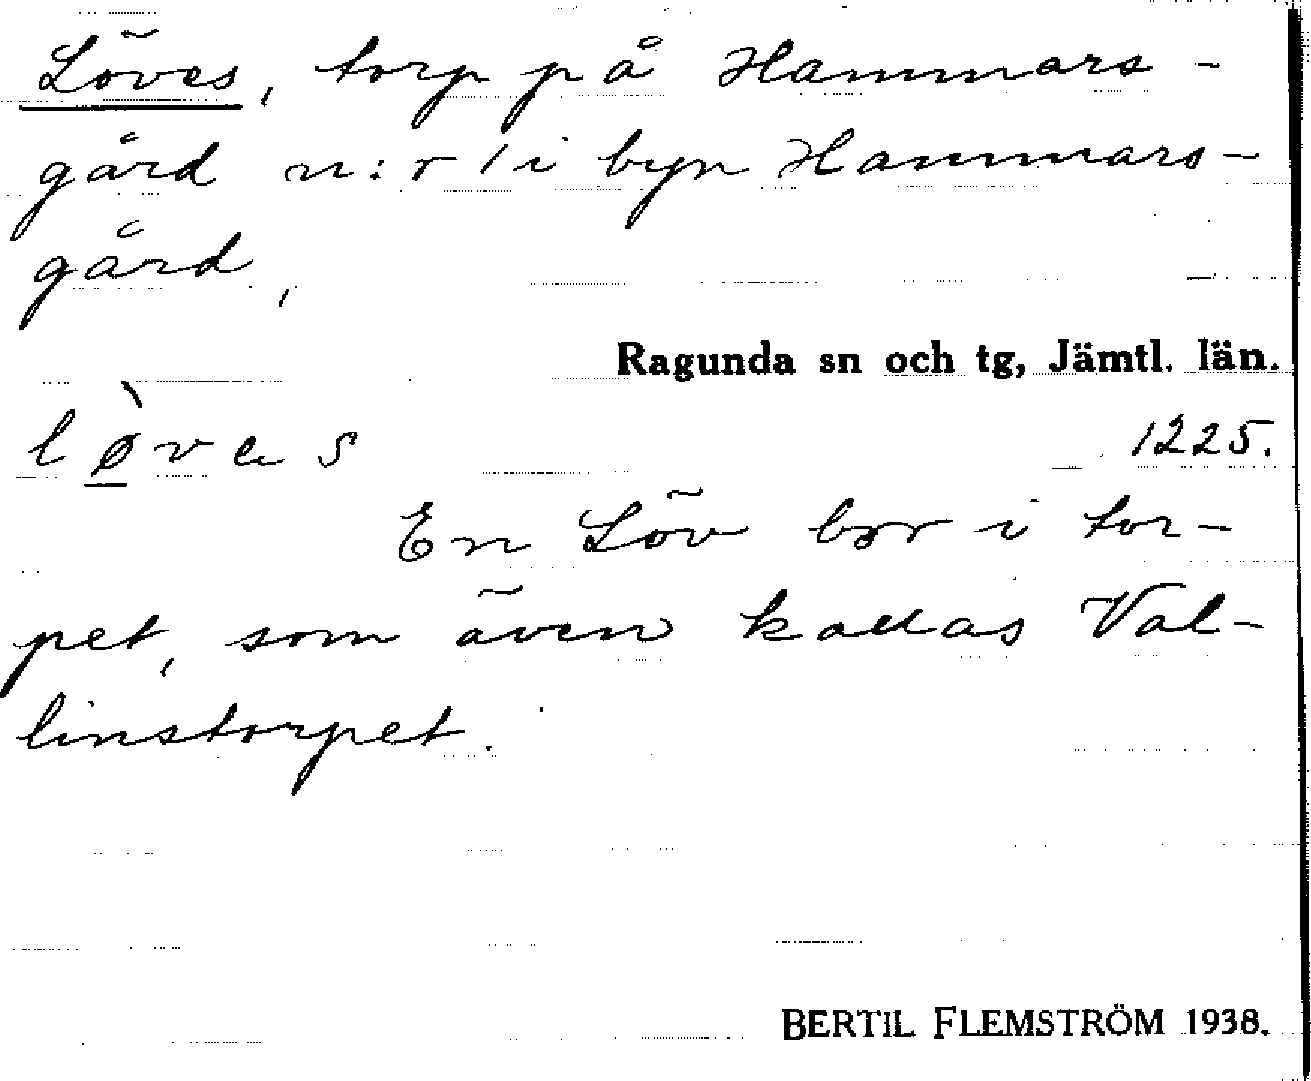 Löves, torp på Hammars-
gård n:r 1 i byn Hammars-
gård,
Ragunda sn och tg, Jämtl. län.
lø̀ves 1225.
En Löv bor i tor-
pet, som även kallas Val-
linstorpet.
BERTIL FLEMSTRÖM 1938.